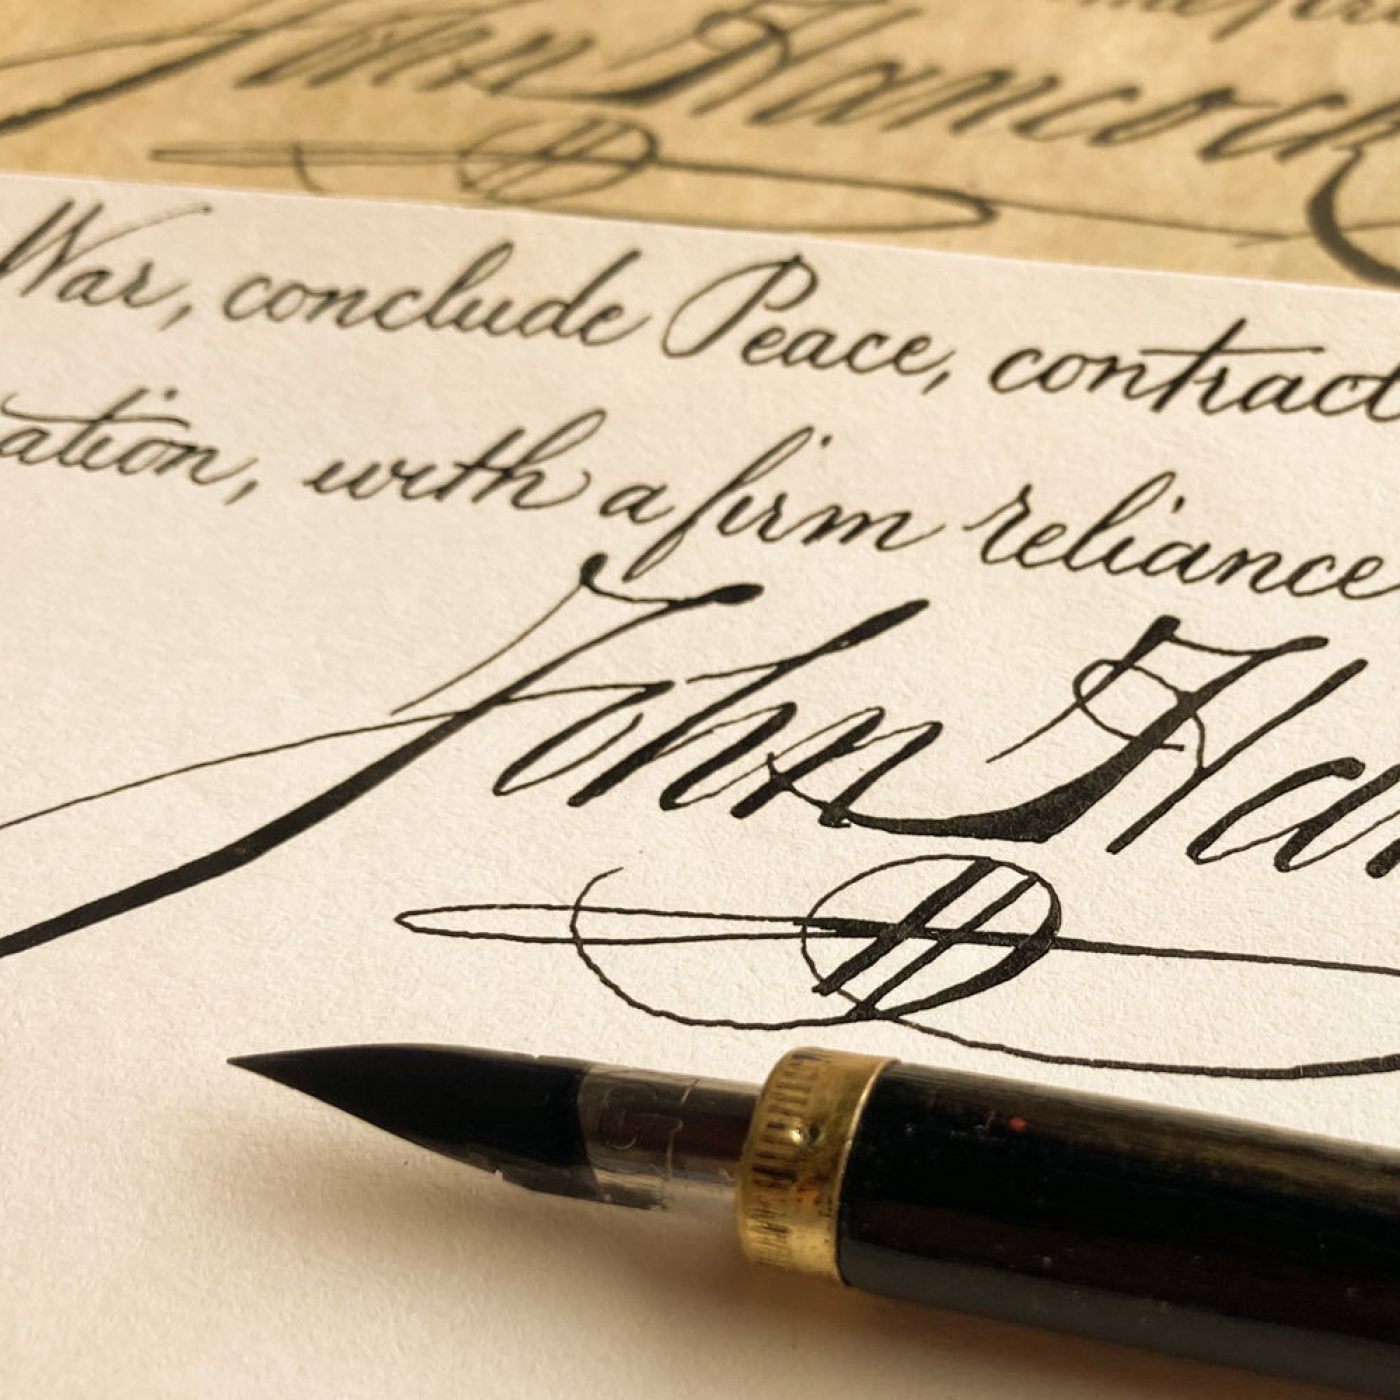 John Hancock
War, conclude Peace, contract
ation, with a firm reliance
John Han